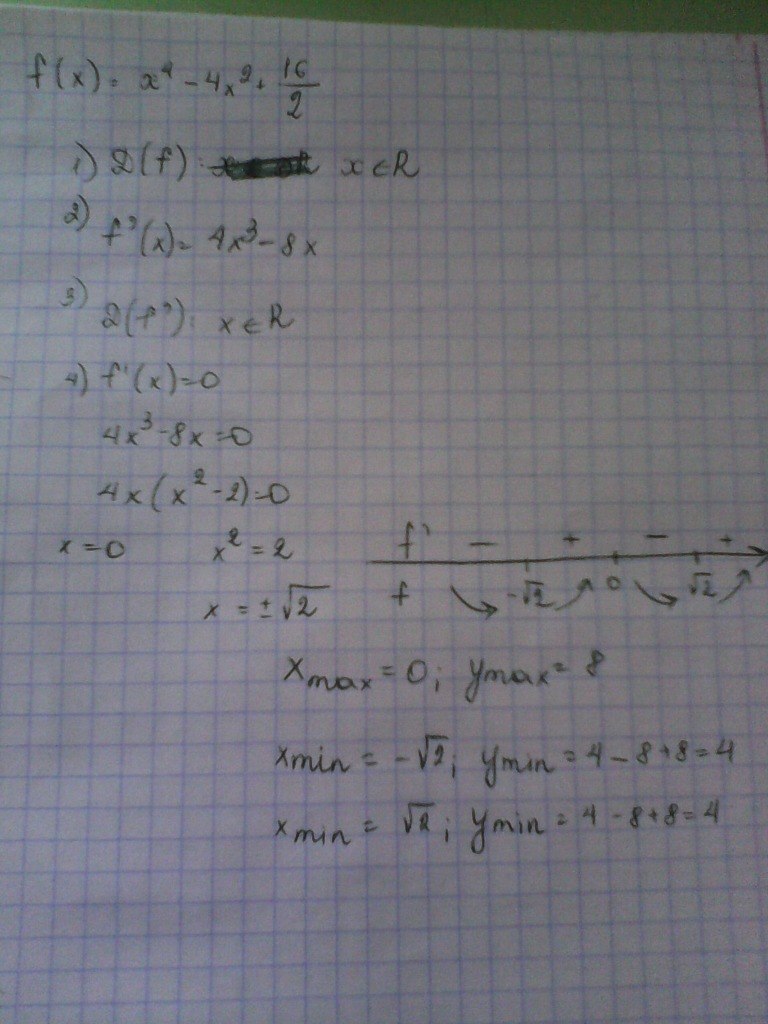 f(x) = x⁴ - 4x² + 16/2
1) D(f): x ∈ R
2) f'(x) = 4x³ - 8x
3) D(f'): x ∈ R
4) f'(x) = 0
4x³ - 8x = 0
4x(x² - 2) = 0
x = 0 x² = 2
x = ±√2
f' - + - +
f -√2 0 √2
xmax = 0; ymax = 8
xmin = -√2; ymin = 4 - 8 + 8 = 4
xmin = √2; ymin = 4 - 8 + 8 = 4